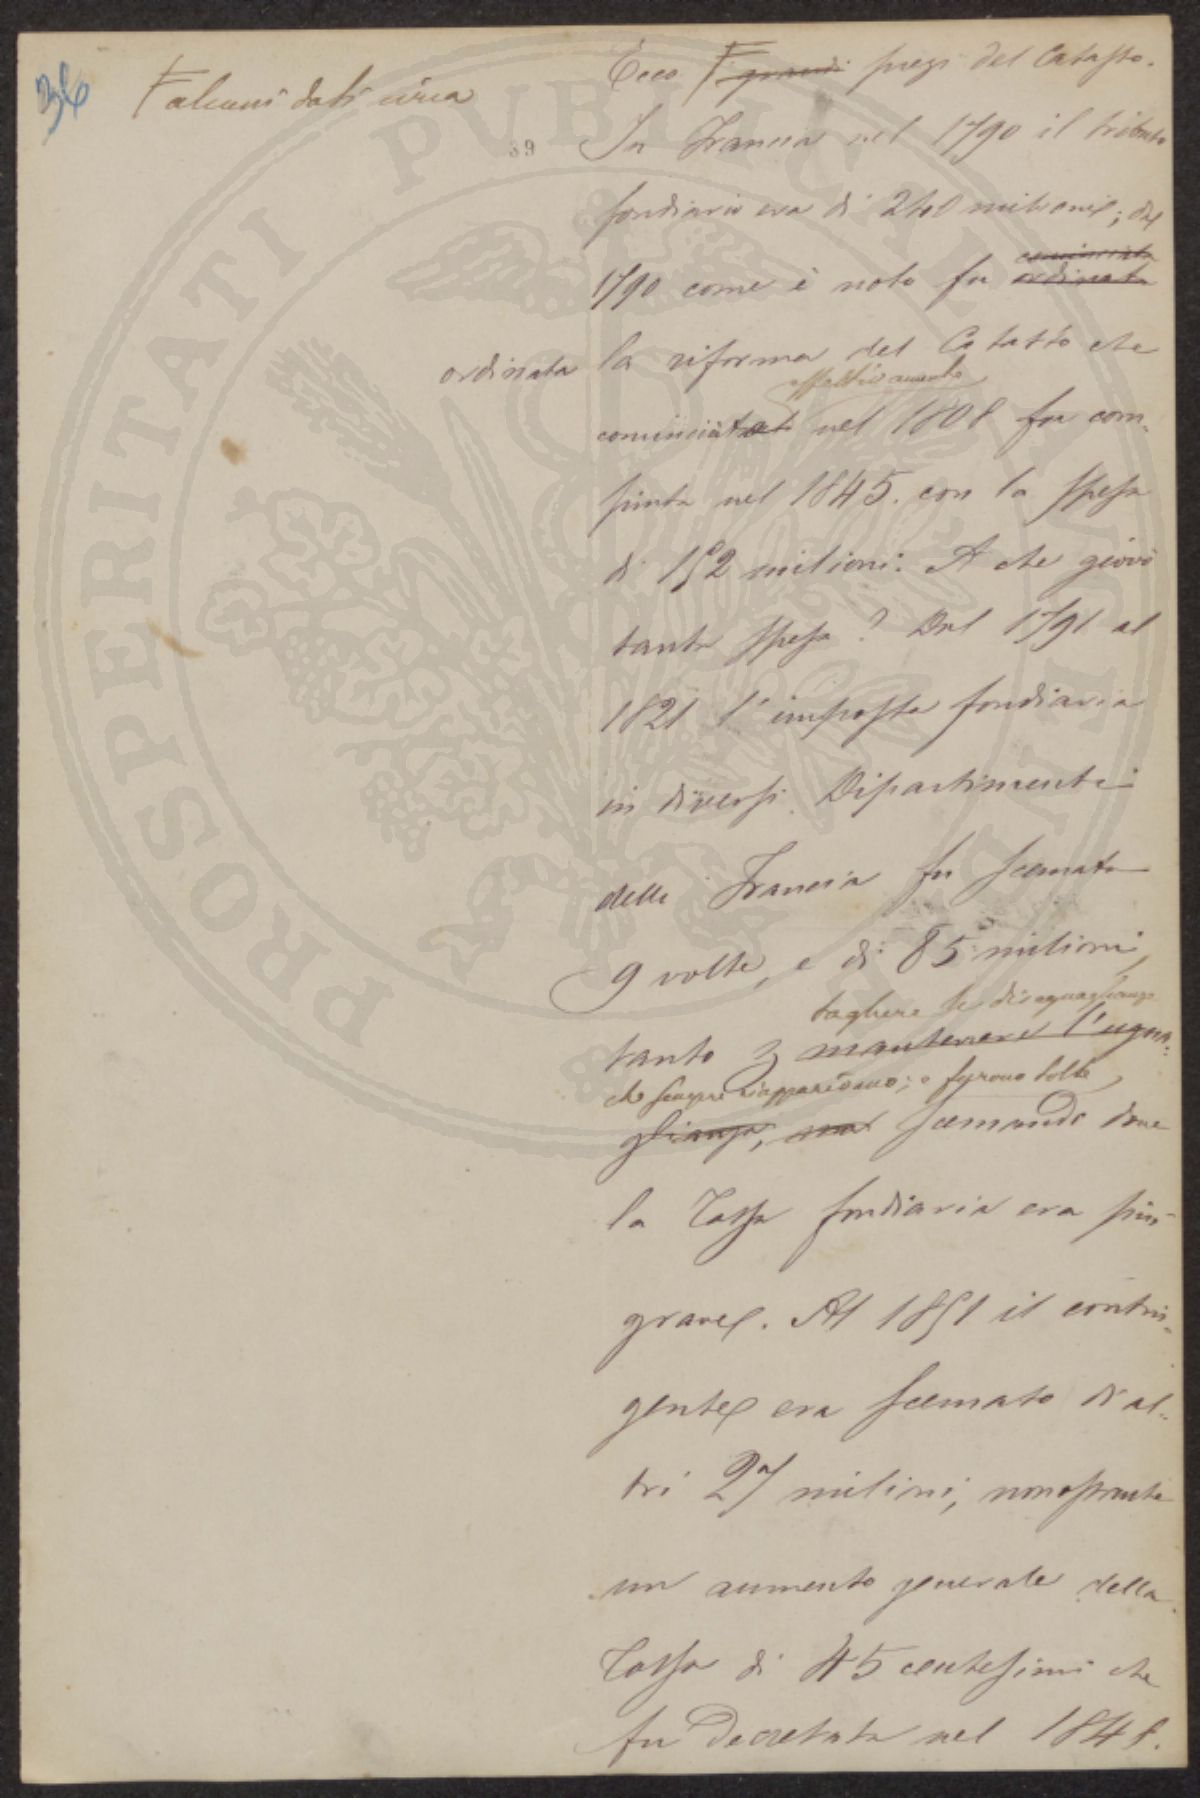 36
alcuni dati circa
39
Ecco grandi pregi del Catasto.
In Francia nel 1790 il tributo
fondiario era di 240 milioni; del
cominciata
1790 come è noto fu ordinata
ordinata
la riforma del Catasto che
effettivamente
cominciata nel 1808 fu com-
piuta nel 1845. con la spesa
di 152 milioni: A che giovò
tanta spesa? Dal 1791 al
1821 l'imposta fondiaria
in diversi Dipartimenti
della Francia fu scemata
9 volte, e di 85 milioni,
togliere le disuguaglianze
tanto mantenere l'ugua-
che sempre riapparivano; e furono tolte,
glianza, ma scemando dove
la Tassa fondiaria era più
grave. Al 1851 il contin-
gente era scemato di al-
tri 27 milioni, nonostante
un aumento generale della
Tassa di 45 centesimi che
fu Decretata nel 1848.
PROSPERITATI PUBLICAE